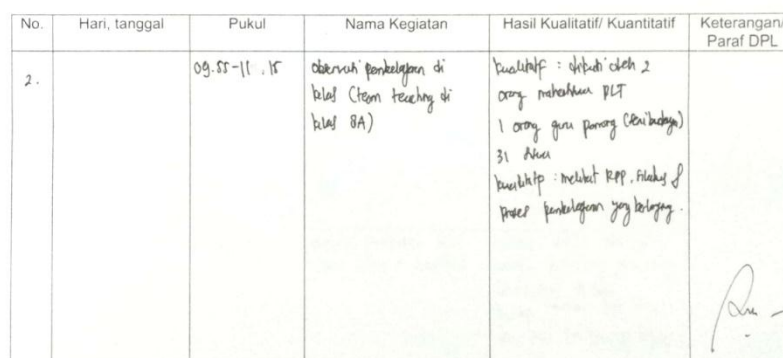 No. Hari, tanggal Pukul Nama Kegiatan Hasil Kualitatif/ Kuantitatif Keterangan/
Paraf DPL
2. 09.55-11.15 observasi pembelajaran di
kelas (team teaching di
kelas 8A)
kualitatif : diikuti oleh 2
orang mahasiswa PLT
1 orang guru pamong (seni budaya)
31 siswa
kualitatif : melihat RPP, silabus &
proses pembelajaran yang berlangsung.